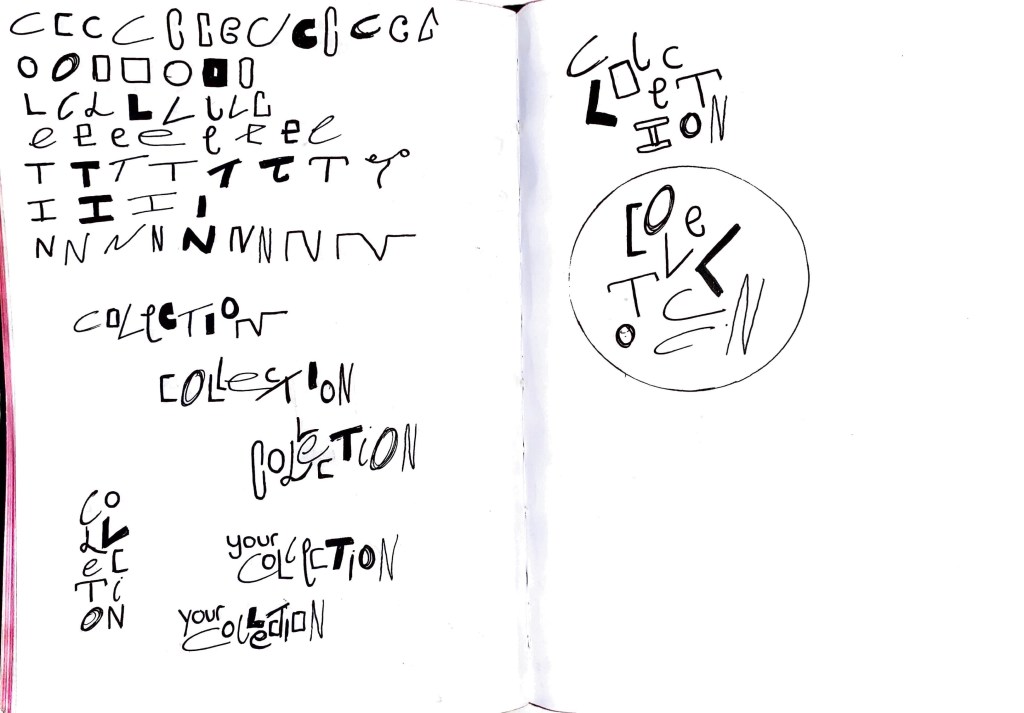 C C C C C C C C C C C C C
O O O O O O O
L L L L L L L L
e e e e e e e e
T T T T T T T T
I I I I
N N N N N N N N N
COLLeCTION
COLLeCTION
COLLeCTION
CO
LL
eC
Ti
ON
your
COLLeCTiON
your
COLLeCTION
C L C
L O e T
I O N
C O e
L L
T C I N
O